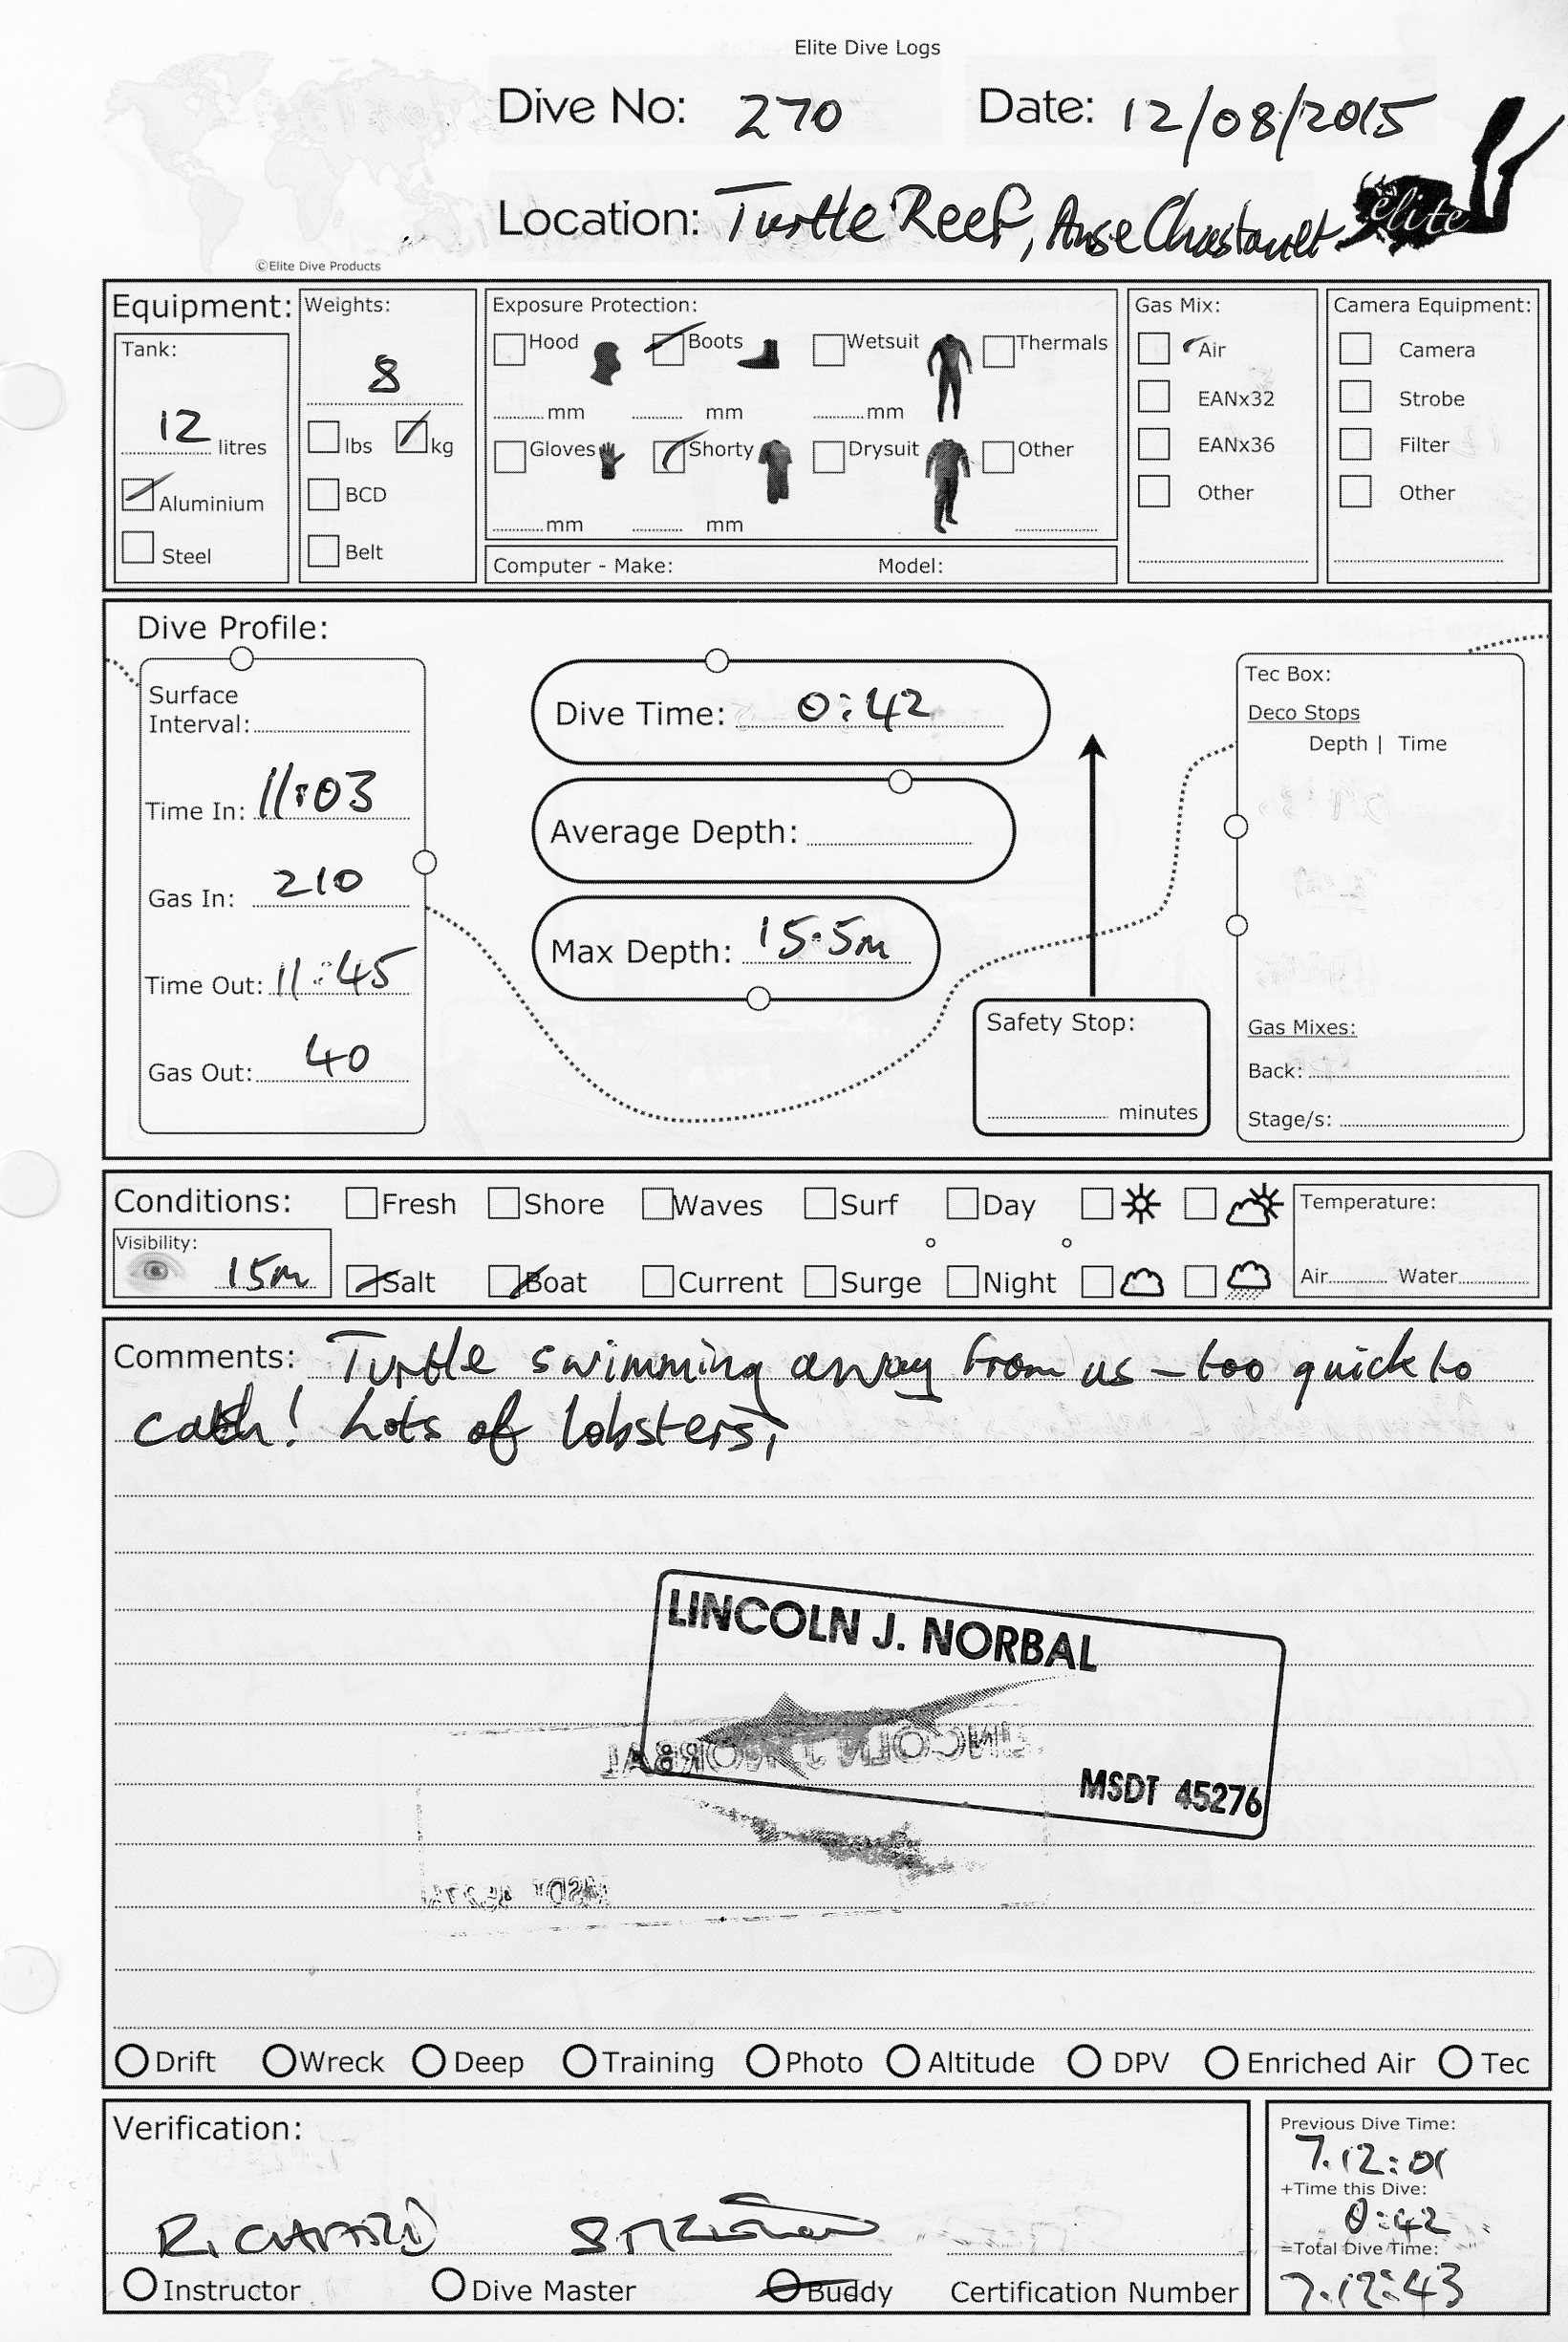 Elite Dive Logs
Dive No: 270 Date: 12/08/2015
Location: Turtle Reef, Anse Chastanet
elite
©Elite Dive Products
Equipment: Weights: Exposure Protection: Gas Mix: Camera Equipment:
Tank: Hood Boots Wetsuit Thermals Air Camera
8 mm mm mm EANx32 Strobe
12 litres lbs kg Gloves Shorty Drysuit Other EANx36 Filter
Aluminium BCD Other Other
Steel Belt mm mm
Computer - Make: Model:
Dive Profile:
Surface
Interval:
Time In: 11:03
Gas In: 210
Time Out: 11:45
Gas Out: 40
Dive Time: 0:42
Average Depth:
Max Depth: 15.5m
Safety Stop:
minutes
Tec Box:
Deco Stops
Depth | Time
Gas Mixes:
Back:
Stage/s:
Conditions: Fresh Shore Waves Surf Day Temperature:
Visibility: 15m Salt Boat Current Surge Night Air Water
Comments: Turtle swimming away from us - too quick to
catch! Lots of lobsters,
LINCOLN J. NORBAL
MSDT 45276
Drift Wreck Deep Training Photo Altitude DPV Enriched Air Tec
Verification:
RICHARD
Instructor Dive Master Buddy Certification Number
Previous Dive Time:
7.12:01
+Time this Dive:
0:42
=Total Dive Time:
7.12:43